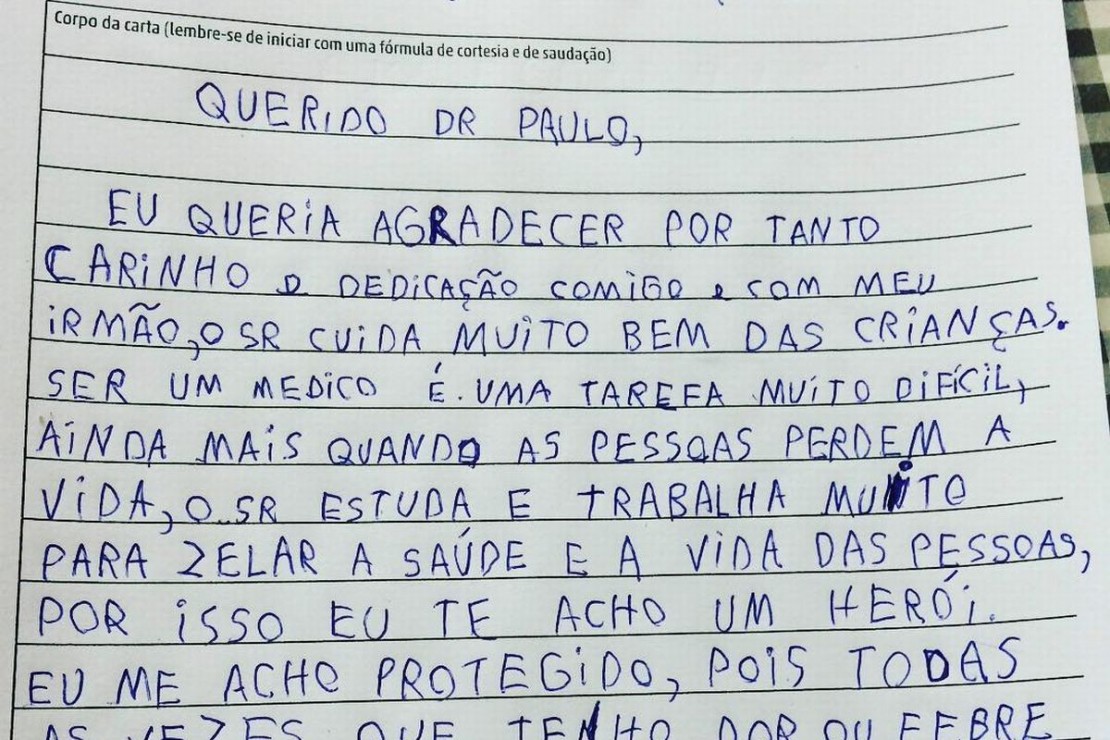 Corpo da carta (lembre-se de iniciar com uma fórmula de cortesia e de saudação)
QUERIDO DR PAULO,
EU QUERIA AGRADECER POR TANTO
CARINHO e DEDICAÇÃO COMIGO e COM MEU
IRMÃO, O SR CUIDA MUITO BEM DAS CRIANÇAS.
SER UM MEDICO É UMA TAREFA MUITO DIFÍCIL,
AINDA MAIS QUANDO AS PESSOAS PERDEM A
VIDA, O SR ESTUDA E TRABALHA MUITO
PARA ZELAR A SAÚDE E A VIDA DAS PESSOAS,
POR ISSO EU TE ACHO UM HERÓI.
EU ME ACHO PROTEGIDO, POIS TODAS
AS VEZES QUE TENHO DOR OU FEBRE